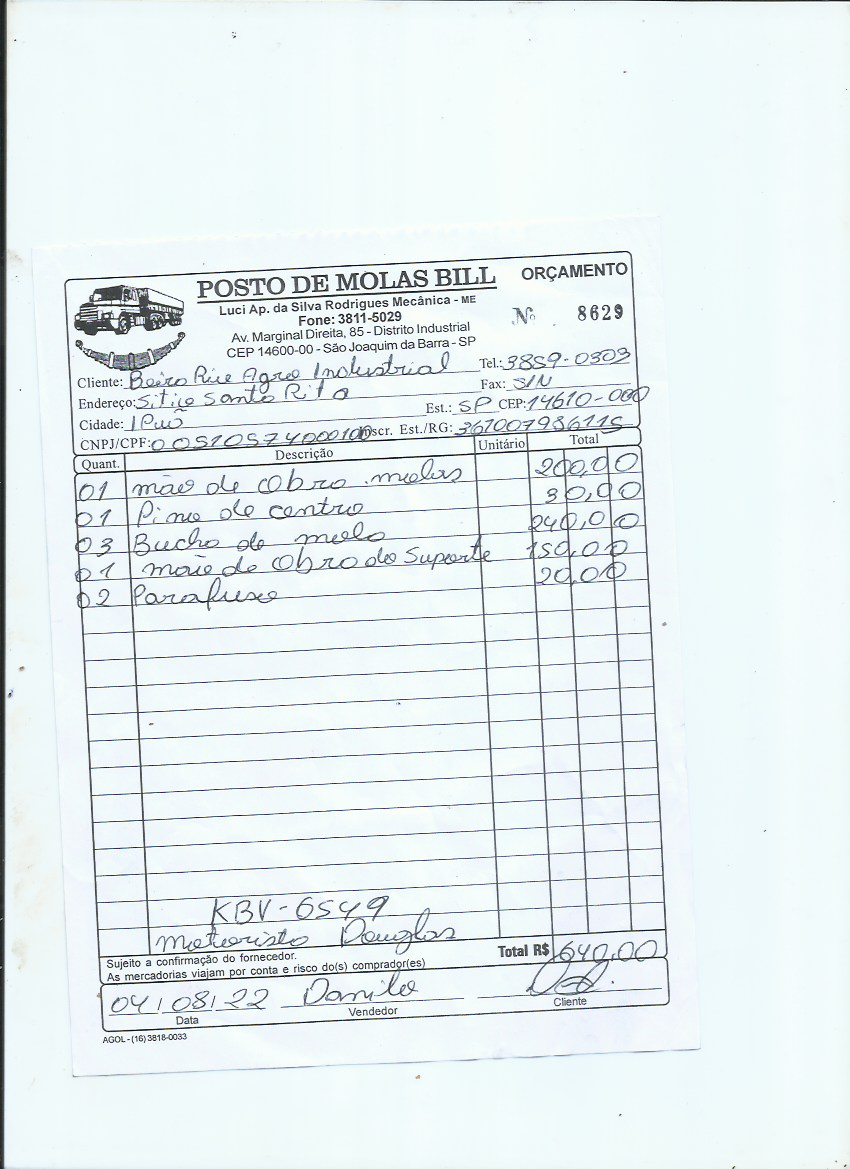 POSTO DE MOLAS BILL
ORÇAMENTO
Luci Ap. da Silva Rodrigues Mecânica - ME
Fone: 3811-5029
Nº 8629
Av. Marginal Direita, 85 - Distrito Industrial
CEP 14600-00 - São Joaquim da Barra - SP
Cliente: Beira Rive Agro Industrial Tel.: 3859-0303
Endereço: Sitio Santa Rita Fax: S/N
Cidade: IPuã Est.: SP CEP: 14610-000
CNPJ/CPF: Inscr. Est./RG:
Quant. Descrição Unitário Total
01 mão de obra molas 200,00
01 Pino de centro 30,00
03 Bucha de mola 240,00
01 mão de Obra do Suporte 150,00
02 Parafuso 20,00
KBV-6549
motorista Douglas
Sujeito a confirmação do fornecedor.
As mercadorias viajam por conta e risco do(s) comprador(es)
Total R$ 640,00
04/08/22 Danilo
Data Vendedor Cliente
AGOL - (16) 3818-0033